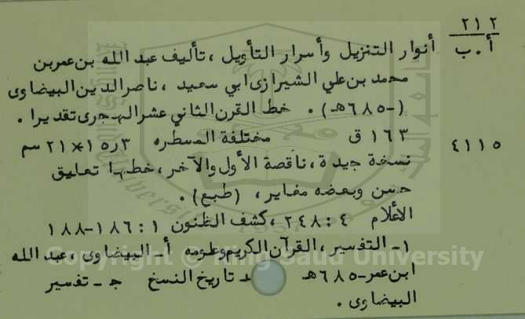 ٢١٢
أ.ب
أنوار التنزيل وأسرار التأويل ، تأليف عبد الله بن عمر بن
محمد بن علي الشيرازى ابي سعيد ، ناصر الدين البيضاوى
(-٦٨٥هـ) . خط القرن الثاني عشر الهجرى تقديرا .
١٦٣ ق مختلفة المسطره ٢١×١٥٫٣ سم
٤١١٥
نسخة جيدة ، ناقصة الأول والآخر ، خطها تعليق
حسن وبعضه مغاير ، (طبع) .
الأعلام ٤ : ٢٤٨ ، كشف الظنون ١ : ١٨٦-١٨٨
١- التفسير ، القرآن الكريم وعلومه أ- البيضاوى ، عبد الله
ابن عمر-٦٨٥هـ تاريخ النسخ ج- تفسير
البيضاوى .
Copyright © King Saud University